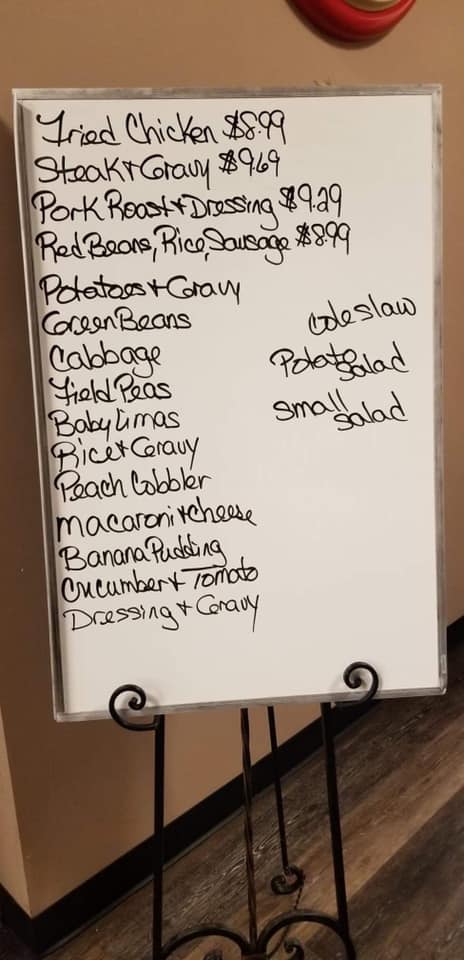 Fried Chicken $8.99
Steak + Gravy $9.69
Pork Roast + Dressing $9.29
Red Beans, Rice, Sausage $8.99
Potatoes + Gravy
Green Beans
Cabbage
Field Peas
Baby Limas
Rice + Gravy
Peach Cobbler
macaroni + cheese
Banana Pudding
Cucumber + Tomato
Dressing + Gravy
coleslaw
Potato salad
small salad